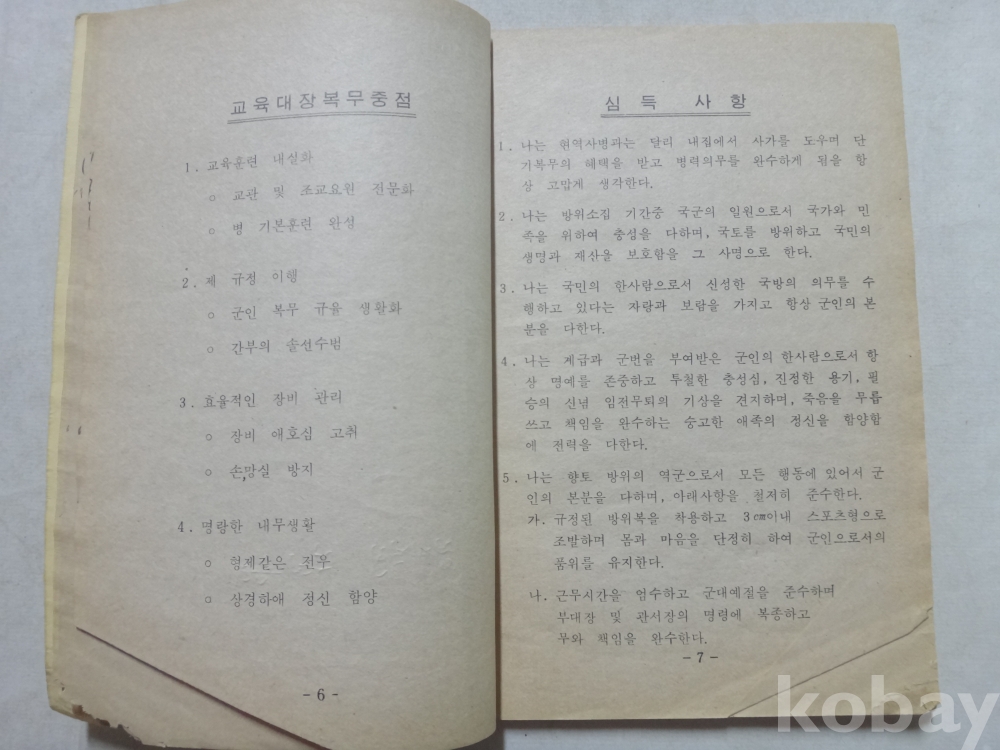 교육대장복무중점
1. 교육훈련 내실화
o 교관 및 조교요원 전문화
o 병 기본훈련 완성
2. 제 규정 이행
o 군인 복무 규율 생활화
o 간부의 솔선수범
3. 효율적인 장비 관리
o 장비 애호심 고취
o 손,망실 방지
4. 명랑한 내무생활
o 형제같은 전우
o 상경하애 정신 함양
- 6 -
심 득 사 항
1. 나는 현역사병과는 달리 내집에서 사가를 도우며 단
기복무의 혜택을 받고 병력의무를 완수하게 됨을 항
상 고맙게 생각한다.
2. 나는 방위소집 기간중 국군의 일원으로서 국가와 민
족을 위하여 충성을 다하며, 국토를 방위하고 국민의
생명과 재산을 보호함을 그 사명으로 한다.
3. 나는 국민의 한사람으로서 신성한 국방의 의무를 수
행하고 있다는 자랑과 보람을 가지고 항상 군인의 본
분을 다한다.
4. 나는 계급과 군번을 부여받은 군인의 한사람으로서 항
상 명예를 존중하고 투철한 충성심, 진정한 용기, 필
승의 신념 임전무퇴의 기상을 견지하며, 죽음을 무릅
쓰고 책임을 완수하는 숭고한 애족의 정신을 함양함
에 전력을 다한다.
5. 나는 향토 방위의 역군으로서 모든 행동에 있어서 군
인의 본분을 다하며, 아래사항을 철저히 준수한다.
가. 규정된 방위복을 착용하고 3cm이내 스포츠형으로
조발하며 몸과 마음을 단정히 하여 군인으로서의
품위를 유지한다.
나. 근무시간을 엄수하고 군대예절을 준수하며
부대장 및 관서장의 명령에 복종하고
무와 책임을 완수한다.
- 7 -
kobay